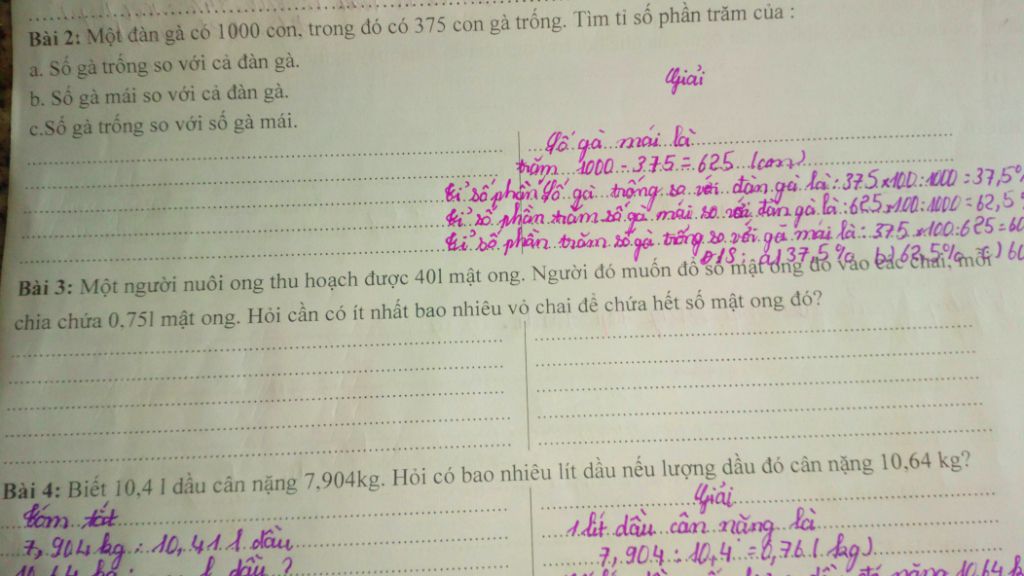 Bài 2: Một đàn gà có 1000 con, trong đó có 375 con gà trống. Tìm tỉ số phần trăm của :
a. Số gà trống so với cả đàn gà.
b. Số gà mái so với cả đàn gà.
c.Số gà trống so với số gà mái.
Giải
Số gà mái là
trăm 1000 - 375 = 625 (con)
tỉ số phần số gà trống so với đàn gà là : 375 x100 : 1000 = 37,5%
tỉ số phần trăm số gà mái so với đàn gà là : 625 x100 : 1000 = 62,5
tỉ số phần trăm số gà trống so với gà mái là : 375 x100 : 625 = 60
Đ/S : a) 37,5% b) 62,5% c) 60
Bài 3: Một người nuôi ong thu hoạch được 40l mật ong. Người đó muốn đổ số mật ong đó vào các chai, mỗi
chia chứa 0,75l mật ong. Hỏi cần có ít nhất bao nhiêu vỏ chai để chứa hết số mật ong đó?
Bài 4: Biết 10,4 l dầu cân nặng 7,904kg. Hỏi có bao nhiêu lít dầu nếu lượng dầu đó cân nặng 10,64 kg?
Tóm tắt
7,904 kg : 10,41 l dầu
l dầu ?
Giải
1 lít dầu cân nặng là
7,904 : 10,4 = 0,76 ( kg)
nặng 10,64 k